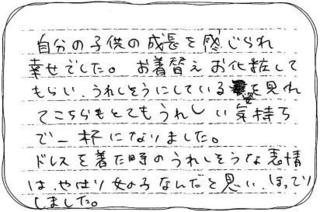 自分の子供の成長を感じられ
幸せでした。お着替えお化粧して
もらい、うれしそうにしている姿を見れ
てこちらもとてもうれしい気持ち
で一杯になりました。
ドレスを着た時のうれしそうな表情
は、やはり女の子なんだと思い、ほっこり
しました。